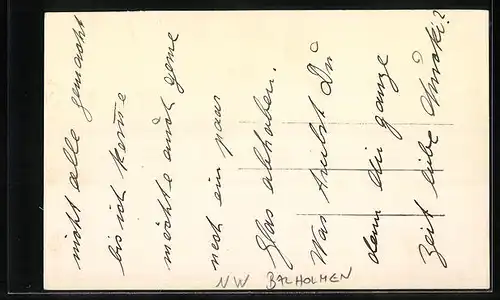 nicht alle gemacht
bis ich kenne
möchte auch gerne
noch ein paar
Glas abhaben.
Was treibst Du
denn die ganze
Zeit liebe
NW BALHOLMEN